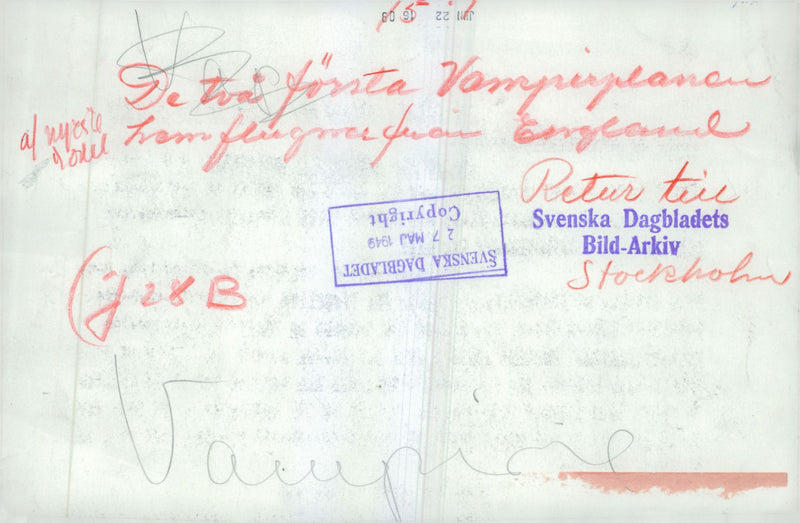 JUN 22 16 03
De två första Vampirplanen
af nyaste
model
hemflugna från England
Retur till
Svenska Dagbladets
Bild-Arkiv
Stockholm
SVENSKA DAGBLADET
27 MAJ 1949
Copyright
(J 28 B
Vampire